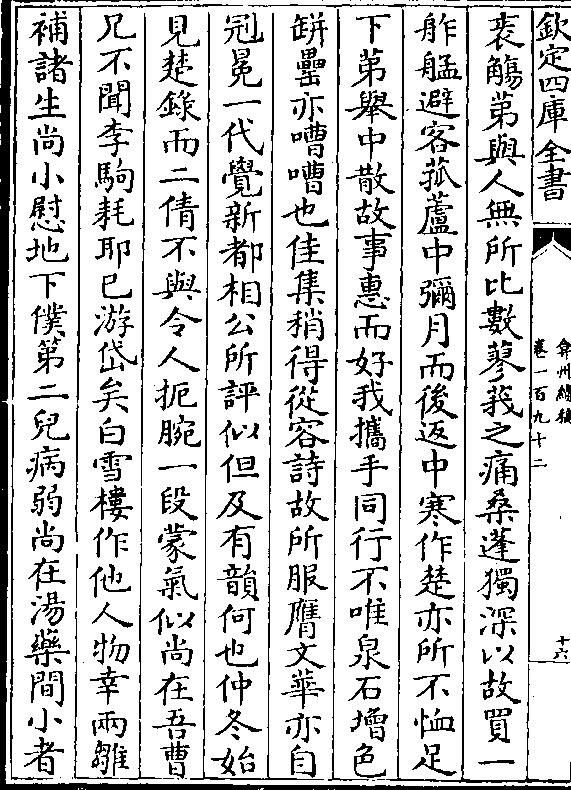 欽定四庫全書
弇州續稿
卷一百九十二
十六
喪觴第與人無所比數蓼莪之痛桑蓬獨深以故買一
舴艋避客菰蘆中彌月而後返中寒作楚亦所不恤足
下第舉中散故事惠而好我攜手同行不唯泉石增色
缾罍亦嘈嘈也佳集稍得從容詩故所服膺文華亦自
冠冕一代覺新都相公所評似但及有韻何也仲冬始
見楚錄而二倩不與令人扼腕一段蒙氣似尚在吾曹
兄不聞李駒耗耶已游岱矣白雪樓作他人物幸兩雛
補諸生尚小慰地下僕第二兒病弱尚在湯藥間小者